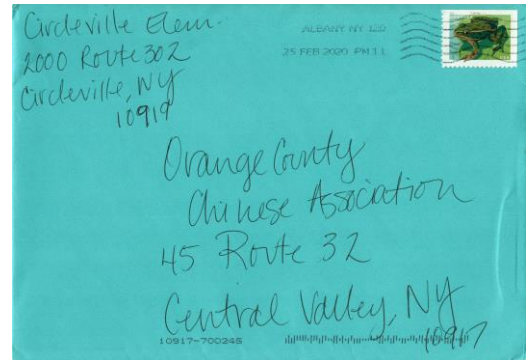 Circleville Elem.
2000 Route 302
Circleville, NY
10919
ALBANY NY 120
25 FEB 2020 PM 1 L
Orange County
Chinese Association
45 Route 32
Central Valley, NY
10917
10917-700245